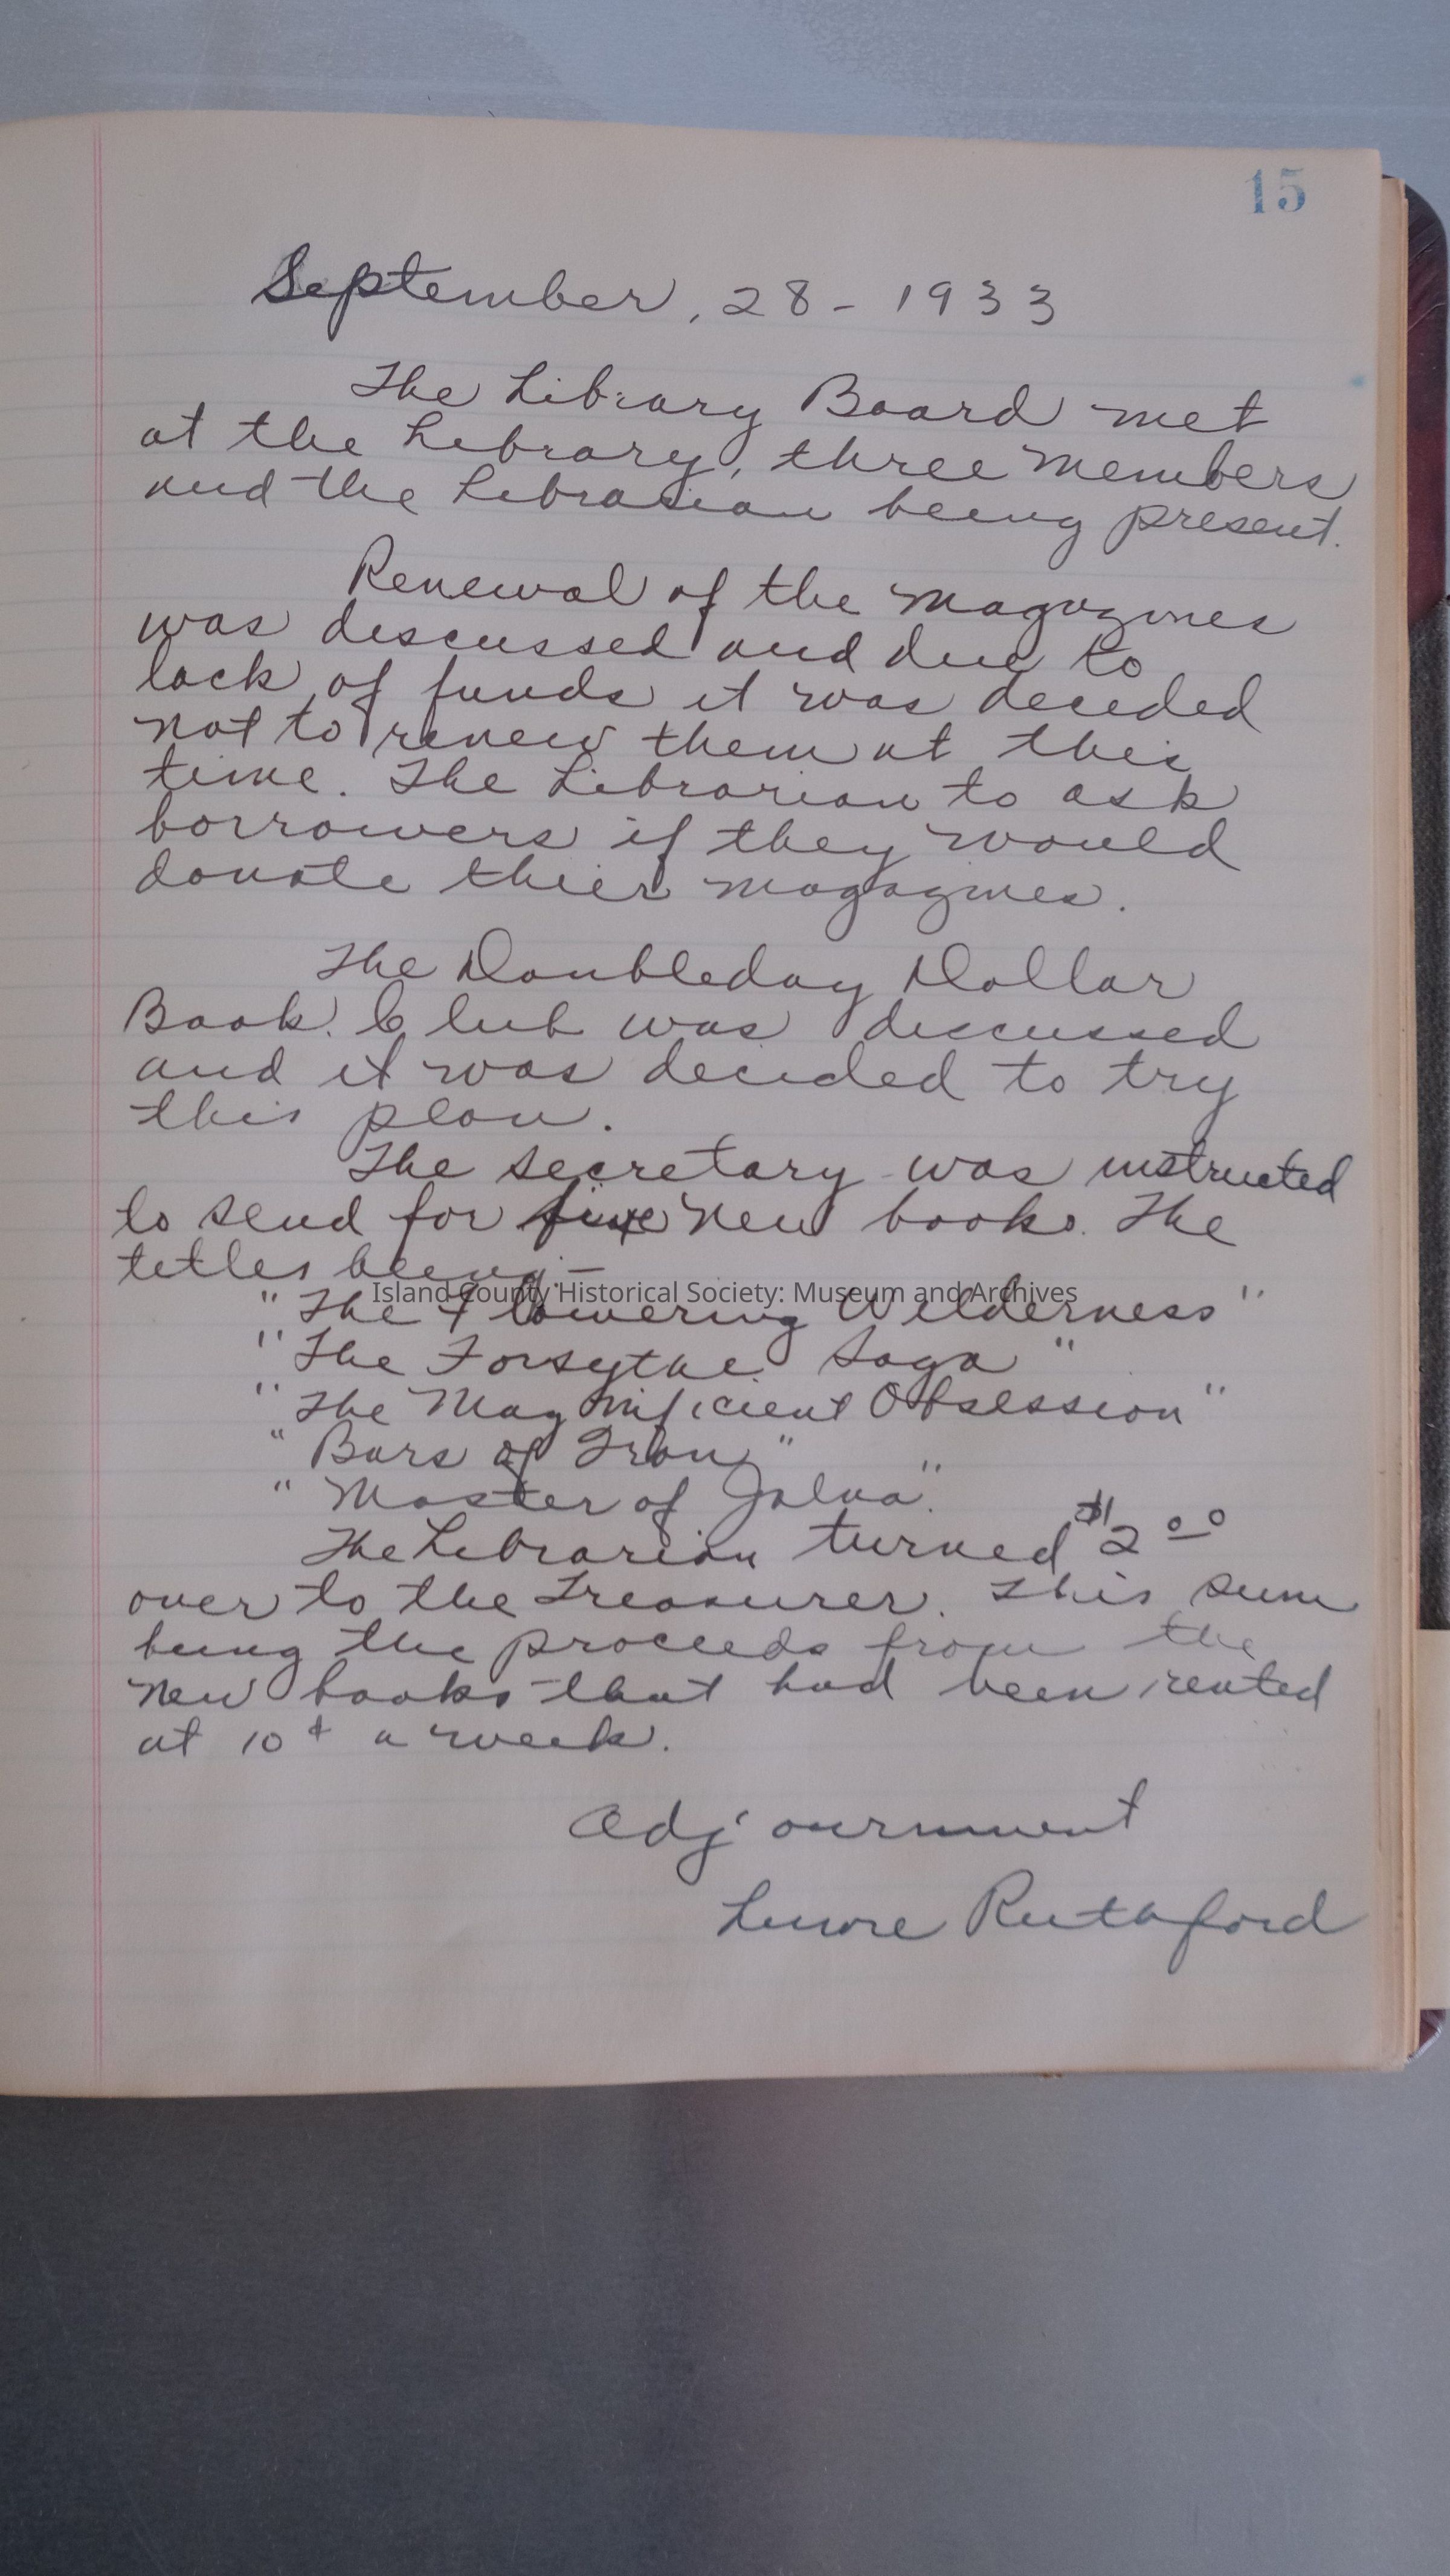 15
September, 28 - 1933
The Library Board met
at the Library, three members
and the Librarian being present.
Renewal of the magazines
was discussed and due to
lack of funds it was decided
not to renew them at this
time. The Librarian to ask
borrowers if they would
donate thier magazines.
The Doubleday Dollar
Book Club was discussed
and it was decided to try
this plan.
The secretary was instructed
to send for five new books. The
titles being:-
Island County Historical Society: Museum and Archives
"The Flowering Wilderness"
"The Forsythe Saga"
"The Magnificient Obsession"
"Bars of Iron"
"Master of Jalna".
The Librarian turned $2 00
over to the Treasurer. This sum
being the proceeds from the
new books that had been rented
at 10¢ a week.
Adjournment
Rutherford